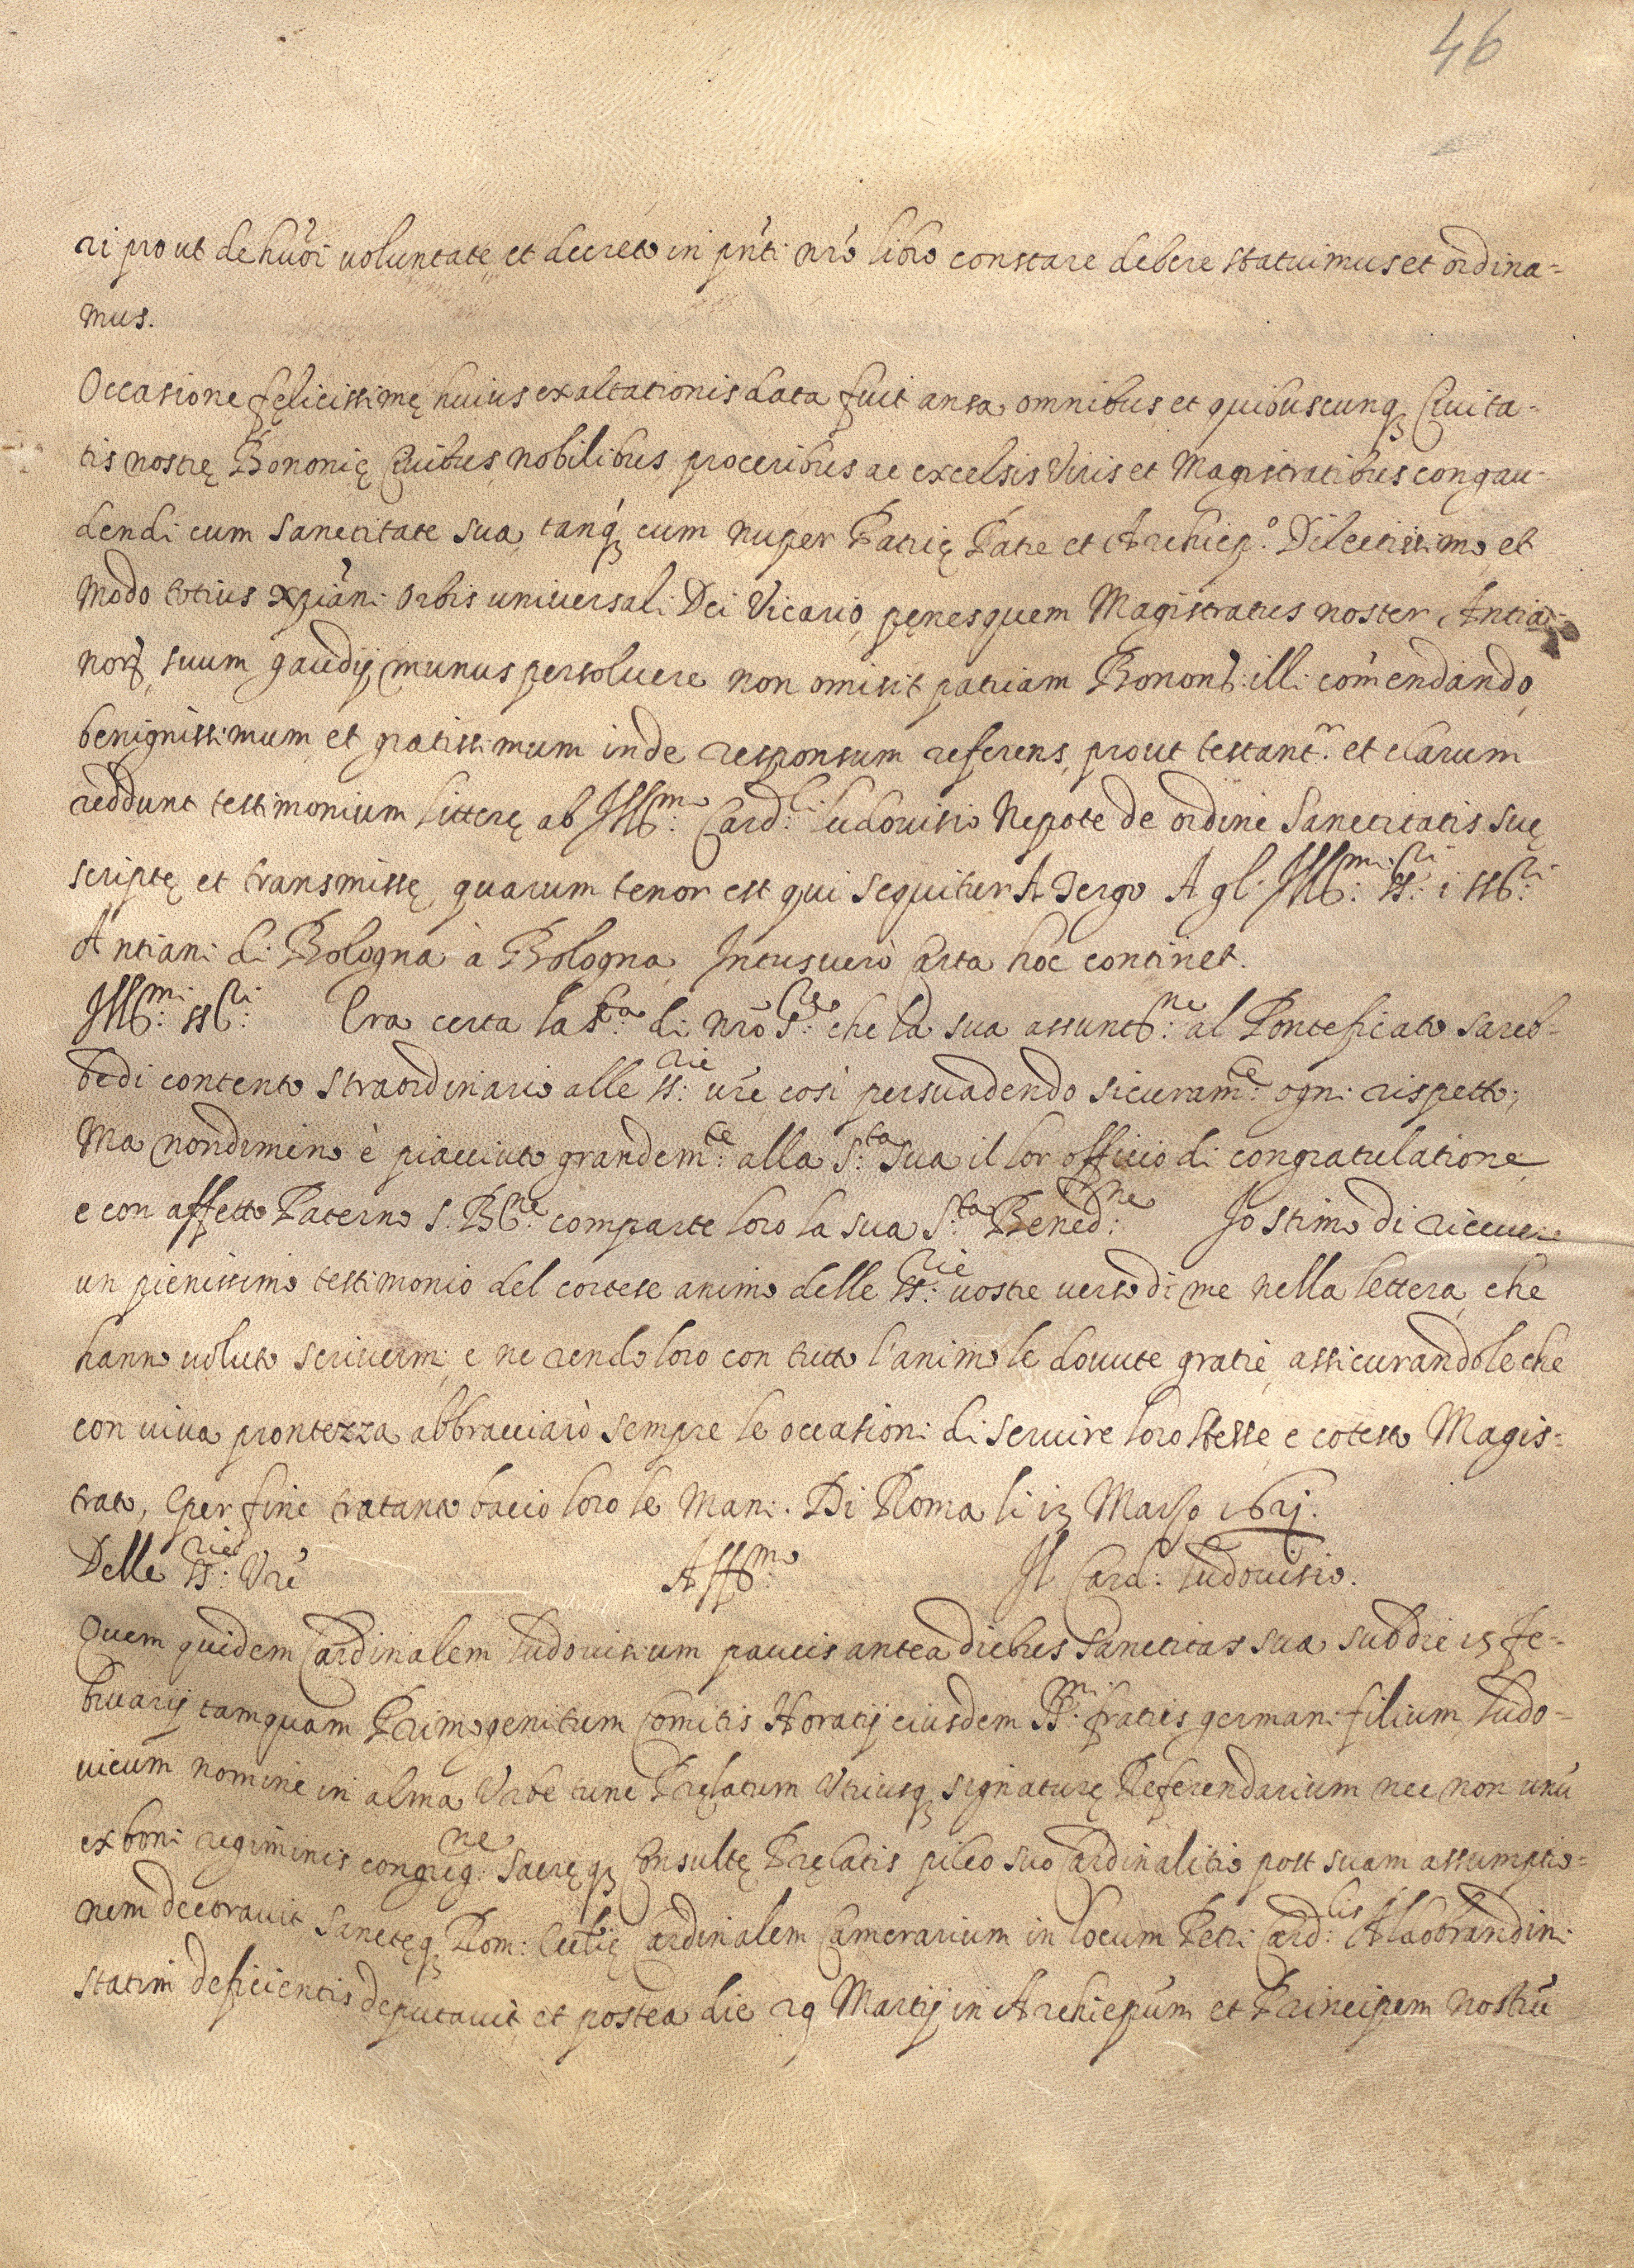 46
ri prout de huõi voluntate et decreto in pñti nrõ libro constare debere statuimus et ordina=
mus.
Occasione felicissimę huius exaltationis data fuit ansa omnibus et quibuscunq Ciuita-
tis nostrę Bononię Ciuibus, nobilibus, proceribus ac excelsis Viris et Magistratibus congau-
dendi cum Sanctitate sua, tanq́ cum nuper Patrię Patre et Archiep.º Dilectissimo, et
modo totius xp̃iani Orbis uniuersali Dei Vicario, penes quem Magistratus noster Antia-
norꝝ suum gaudij munus persoluere non omisit patriam Bonon: illi com̃endando,
benignissimum et gratissimum inde responsum referens, prout testantʳ. et clarum
reddunt testimonium litterę ab Illᵐᵒ: Cardˡⁱ: Ludouisio Nepote de ordine Sanctitatis suę
scriptę et transmissę, quarum tenor est qui sequitur A Tergo A gl' Illᵐⁱ: SSʳⁱ: i SSʳⁱ:
Antiani di Bologna à Bologna Intus uerò Carta hoc continet.
Illᵐⁱ: SSʳⁱ: Era certa la Sᵗᵃ: di Nrõ Sʳᵉ: che la sua assuntⁿᵉ: al Ponteficato sareb-
be di contento straordinario alle SSʳⁱᵉ: vrẽ così persuadendo sicuramᵗᵉ: ogni rispetto;
Ma nondimeno è piacciuto grandemᵗᵉ: alla Sᵗᵃ: sua il lor officio di congratulatione
e con affetto Paterno S. Bⁿᵉ: comparte loro la sua Sᵗᵃ: Benedⁿᵉ: Io stimo di riceuere
un pienissimo testimonio del cortese animo delle SSʳⁱᵉ: vostre verso di me nella lettera, che
hanno voluto scriuermi, e ne rendo loro con tutto l'animo le douute gratie, assicurandole che
con viua prontezza abbracciarò sempre le occasioni di seruire loro stesse, e cotesto Magis=
trato, E per fine tratanto bacio loro le mani. Di Roma li 13 Marzo 1621.
Delle SSʳⁱᵉ: Vrẽ Affᵐᵒ: Il Card: Ludouisio.
Quem quidem Cardinalem Ludouisium paucis antea diebus Sanctitas sua sub die 15 Fe=
bruarij tamquam Primogenitum Comitis Horatij eiusdem SSᵐⁱ: fratris germani filium, Ludo=
uicum nomine in alma Vrbe tunc Pręlatum Vtriusq signaturę Referendarium nec non unũ
ex boni regiminis congregⁿᵉ: Sacręq Consultę Pręlatis pileo suo Cardinalitio post suam assumptio=
nem decorauit Sanctęq Rom: Ecclię Cardinalem Camerarium in locum Petri Cardˡⁱˢ: Aldobrandini
statim deficientis deputauit, et postea die 29 Martij in Archiepũm et Principem nostrũ